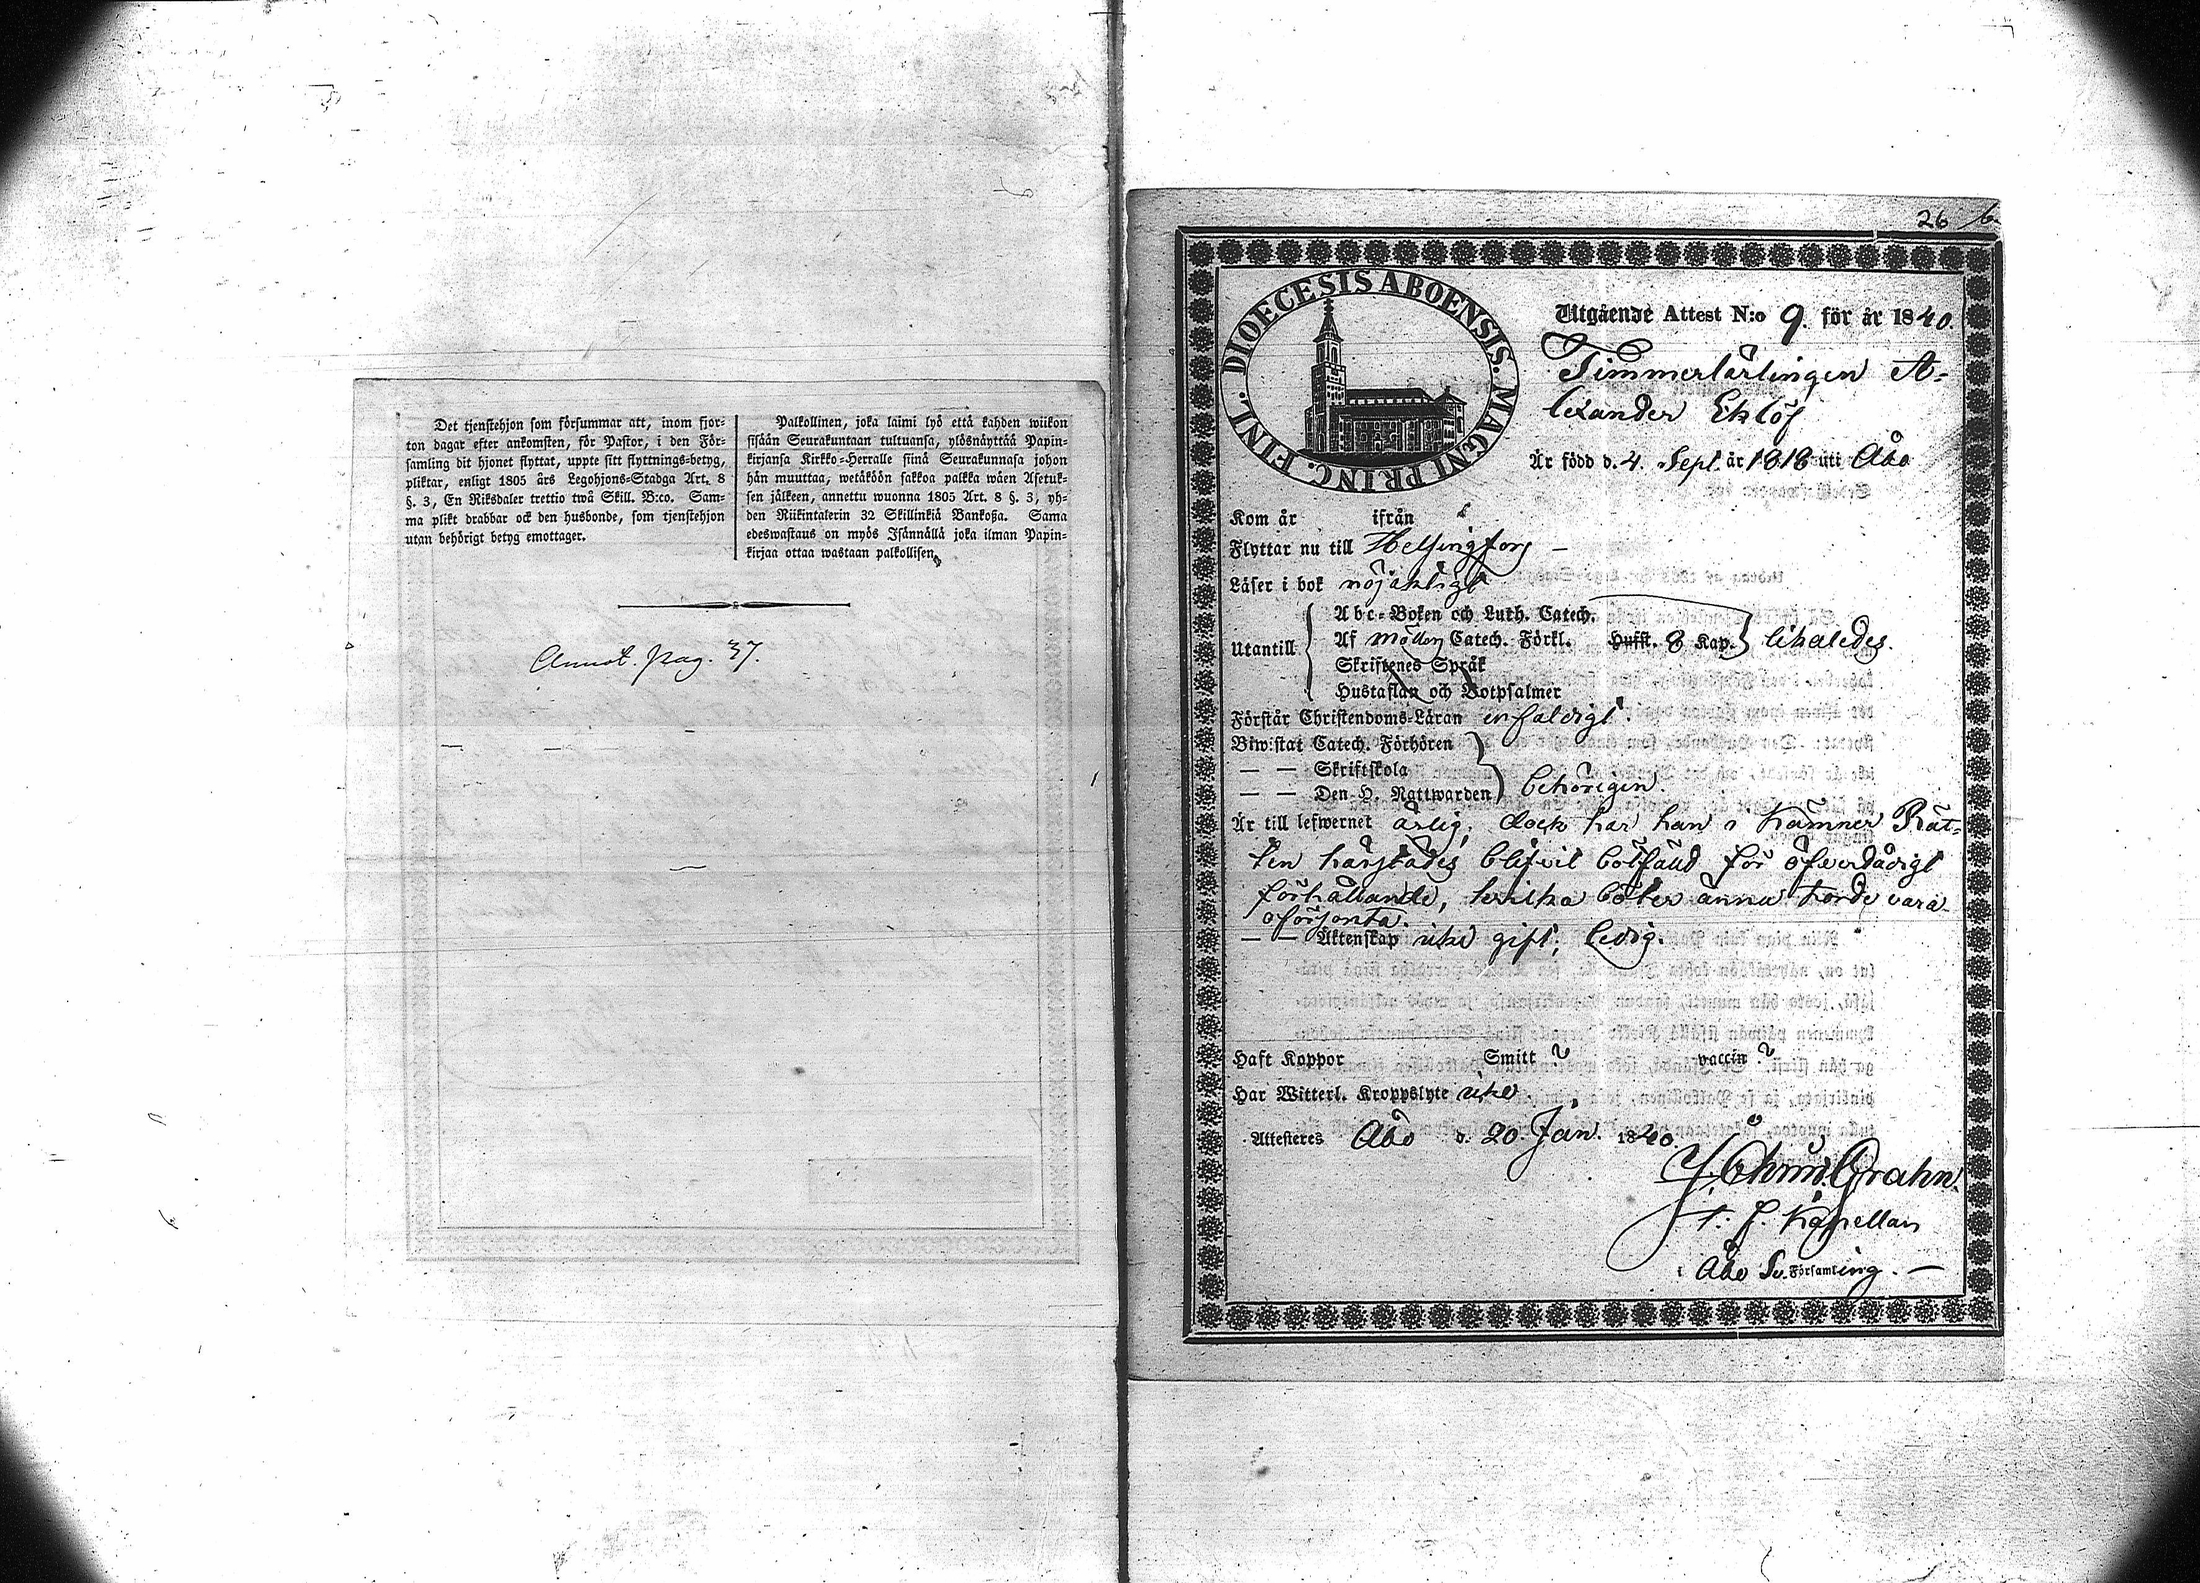 Det tjenstehjon som försummar att, inom fjor-
ton dagar efter ankomsten, för Pastor, i den För-
samling dit hjonet flyttat, uppte sitt flyttnings-betyg,
pliktar, enligt 1805 års Legohjons-Stadga Art. 8
§. 3, En Riksdaler trettio twå Skill. B:co. Sam-
ma plikt drabbar ock den husbonde, som tjenstehjon
utan behörigt betyg emottager.
Palkollinen, joka laimi lyö että kahden wiikon
sisään Seurakuntaan tultuansa, ylösnäyttää Papin-
kirjansa Kirkko-Herralle siinä Seurakunnasa johon
hän muuttaa, wetäköön sakkoa palkka wäen Asetuk-
sen jälkeen, annettu wuonna 1805 Art. 8 §. 3, yh-
den Riikintalerin 32 Skillinkiä Bankossa. Sama
edeswastaus on myös Isännällä joka ilman Papin-
kirjaa ottaa wastaan palkollisen.
Annot. pag. 37.
26
DIOECESIS ABOENSIS. MAGNI PRINC. FINL.
Utgående Attest N:o 9. för år 1840.
Timmerlärlingen A-
lexander Eklöf
Är född d. 4. Sept. år 1818 uti Åbo
Kom år ifrån
Flyttar nu till Helsingfors —
Läser i bok nöjaktigt
Utantill
Abc-Boken och Luth. Catech.
Af Möllers Catech. Förkl. Hufst. 8 Kap. likaledes.
Skriftenes Språk
Hustaflan och Botpsalmer
Förstår Christendoms-Läran enfaldigt.
Biw:stat Catech. Förhören
— — Skriftskola
— — Den H. Nattwarden behörigen.
Är till lefwernet ärlig, dock har han i Kämner Rät-
ten härstädes blifvit bötfälld för öfverdådigt
förhållande, hvilka böter ännu torde vara
oförsonta.
— — Äktenskap icke gift; ledig.
Haft Koppor Smitt vaccin
Har Witterl. Kroppslyte icke
Attesteres Åbo d. 20. Jan. 1840.
Grahn.
t. f. Kapellan
i Åbo Sv. Församling. —